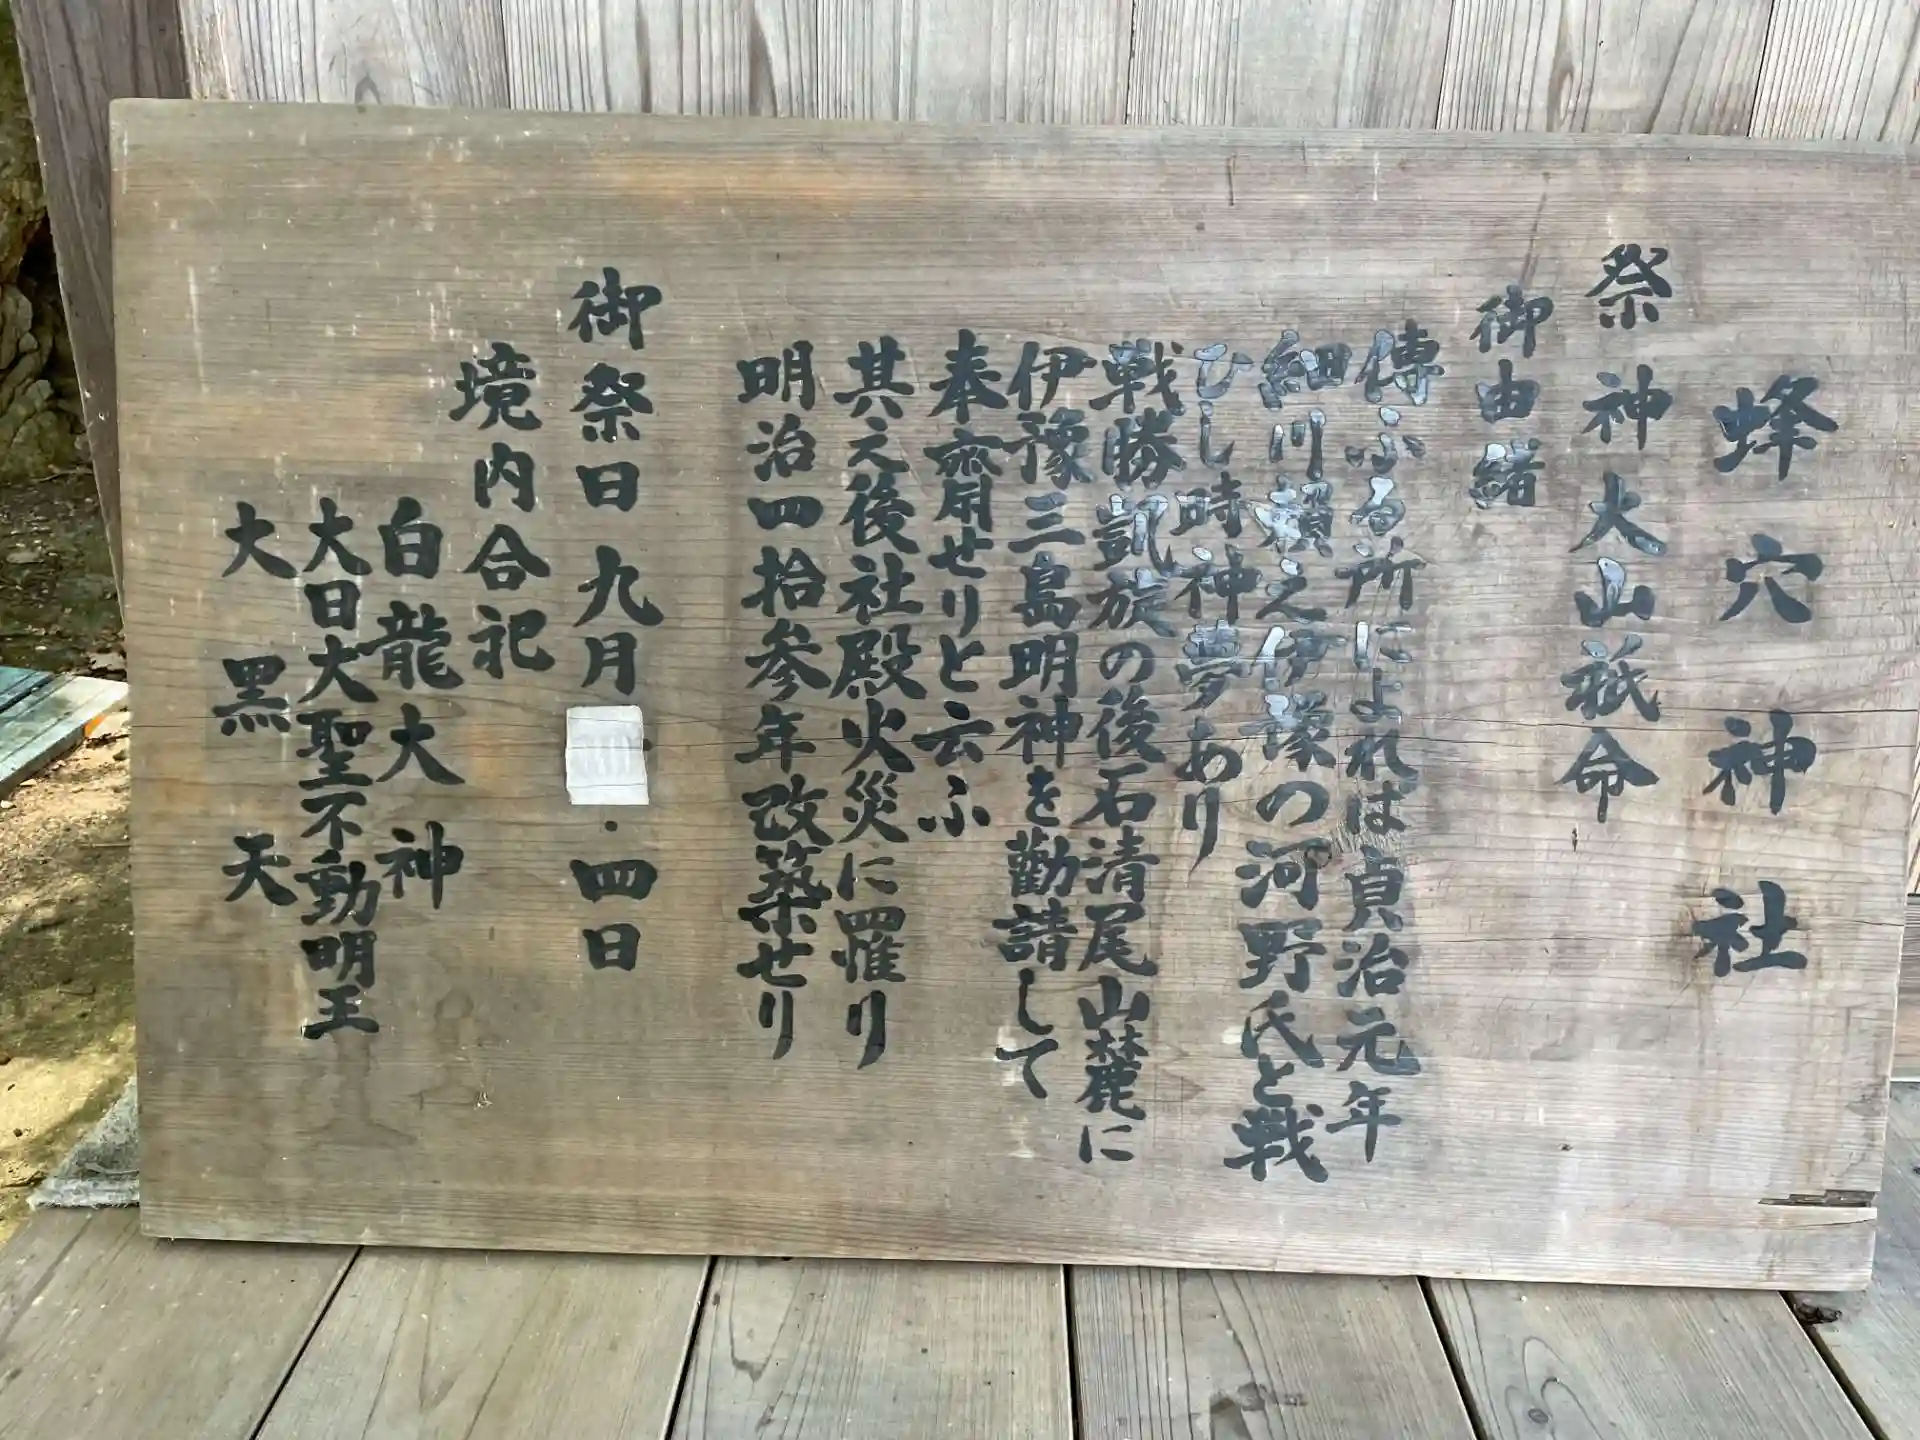 蜂穴神社
祭神大山祇命
御由緒
傳ふる所によれは貞治元年
細川頼之伊豫の河野氏と戦
ひし時神夢あり
戦勝凱旋の後石清尾山麓に
伊豫三島明神を勸請して
奉齋せりと云ふ
其之後社殿火災に罹り
明治四拾参年改築せり
御祭日九月・四日
境内合祀
白龍大神
大日大聖不動明王
大黒天